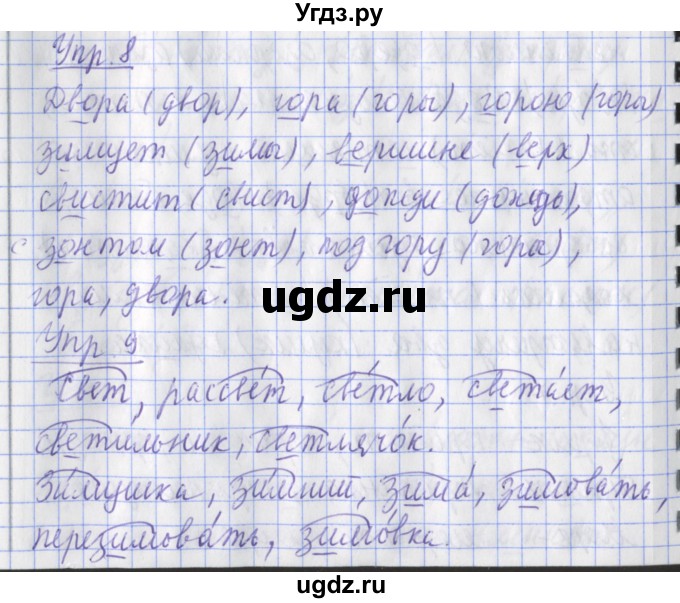 Угдз.ру
Упр. 8
Двора (двор), гора (горы), горою (горы)
зимует (зимы), вершине (верх)
свистит (свист), дожди (дождь),
с зонтом (зонт), под гору (гора),
гора, двора.
ugdz.ru
Упр. 9
Свет, рассве́т, све́тло, света́ет,
светильник, светлячо́к.
Зи́мушка, зи́мний, зима́, зимова́ть,
перезимова́ть, зимо́вка.
ugdz.ru